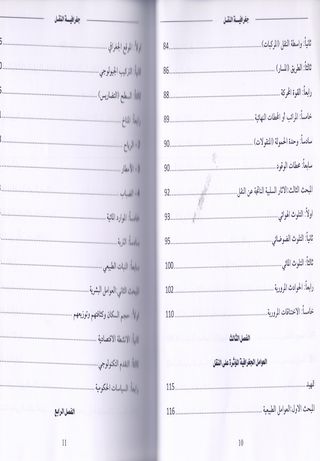 جغرافيـة النقـل
ثانياً: واسطة النقل (المركبات) 84
ثالثاً: الطريق (المسار) 86
رابعاً: القوة المحركة 88
خامساً: المراتب أو المحطات النهائية 89
سادساً: وحدة الحمولة (المنقولات) 90
سابعاً: محطات الوقود 90
المبحث الثالث: الآثار السلبية الناتجة عن النقل 92
اولاً: التلوث الهوائي 93
ثانياً: التلوث الضوضائي 95
ثالثاً: التلوث المائي 100
رابعاً: الحوادث المرورية 102
خامساً: الاختناقات المرورية 110
الفصل الثالث
العوامل الجغرافية المؤثرة على النقل
تمهيد 115
المبحث الاول: العوامل الطبيعية 116
10
جغرافيـة النقـل
اولاً: الموقع الجغرافي
ثانياً: التركيب الجيولوجي
ثالثاً: السطح (التضاريس)
رابعاً: المناخ
الرياح
الأمطار
الضباب
خامساً: الموارد المائية
سادساً: التربة
سابعاً: النبات الطبيعي
المبحث الثاني: العوامل البشرية
اولاً: حجم السكان وكثافتهم وتوزيعهم
ثانياً: الأنشطة الاقتصادية
ثالثاً: التقدم التكنولوجي
رابعاً: السياسات الحكومية
الفصل الرابع
11